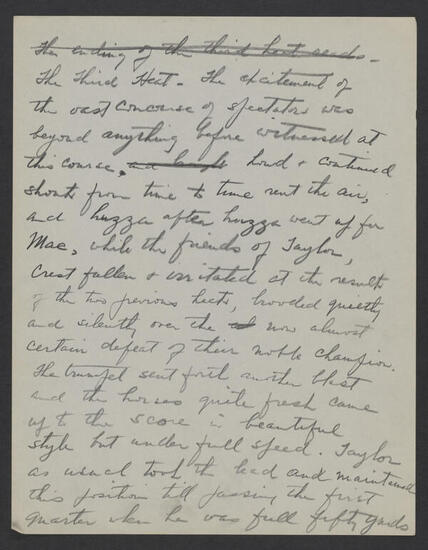 The ending of the third heat reads -
The Third Heat - The excitement of
the vast concourse of spectators was
beyond anything before witnessed at
this course, and laugh loud & continued
shouts from time to time rent the air,
and huzza after huzza went up for
Mac, while the friends of Taylor,
Crest fallen & irritated at the results
of the two previous heats, brooded quietly
and silently over the now almost
certain defeat of their noble champion.
The trumpet sent forth another blast
and the horses quite fresh came
up to the score in beautiful
style but under full speed. Taylor
as usual took the lead and maintained
this position till passing the first
quarter when he was full fifty yards